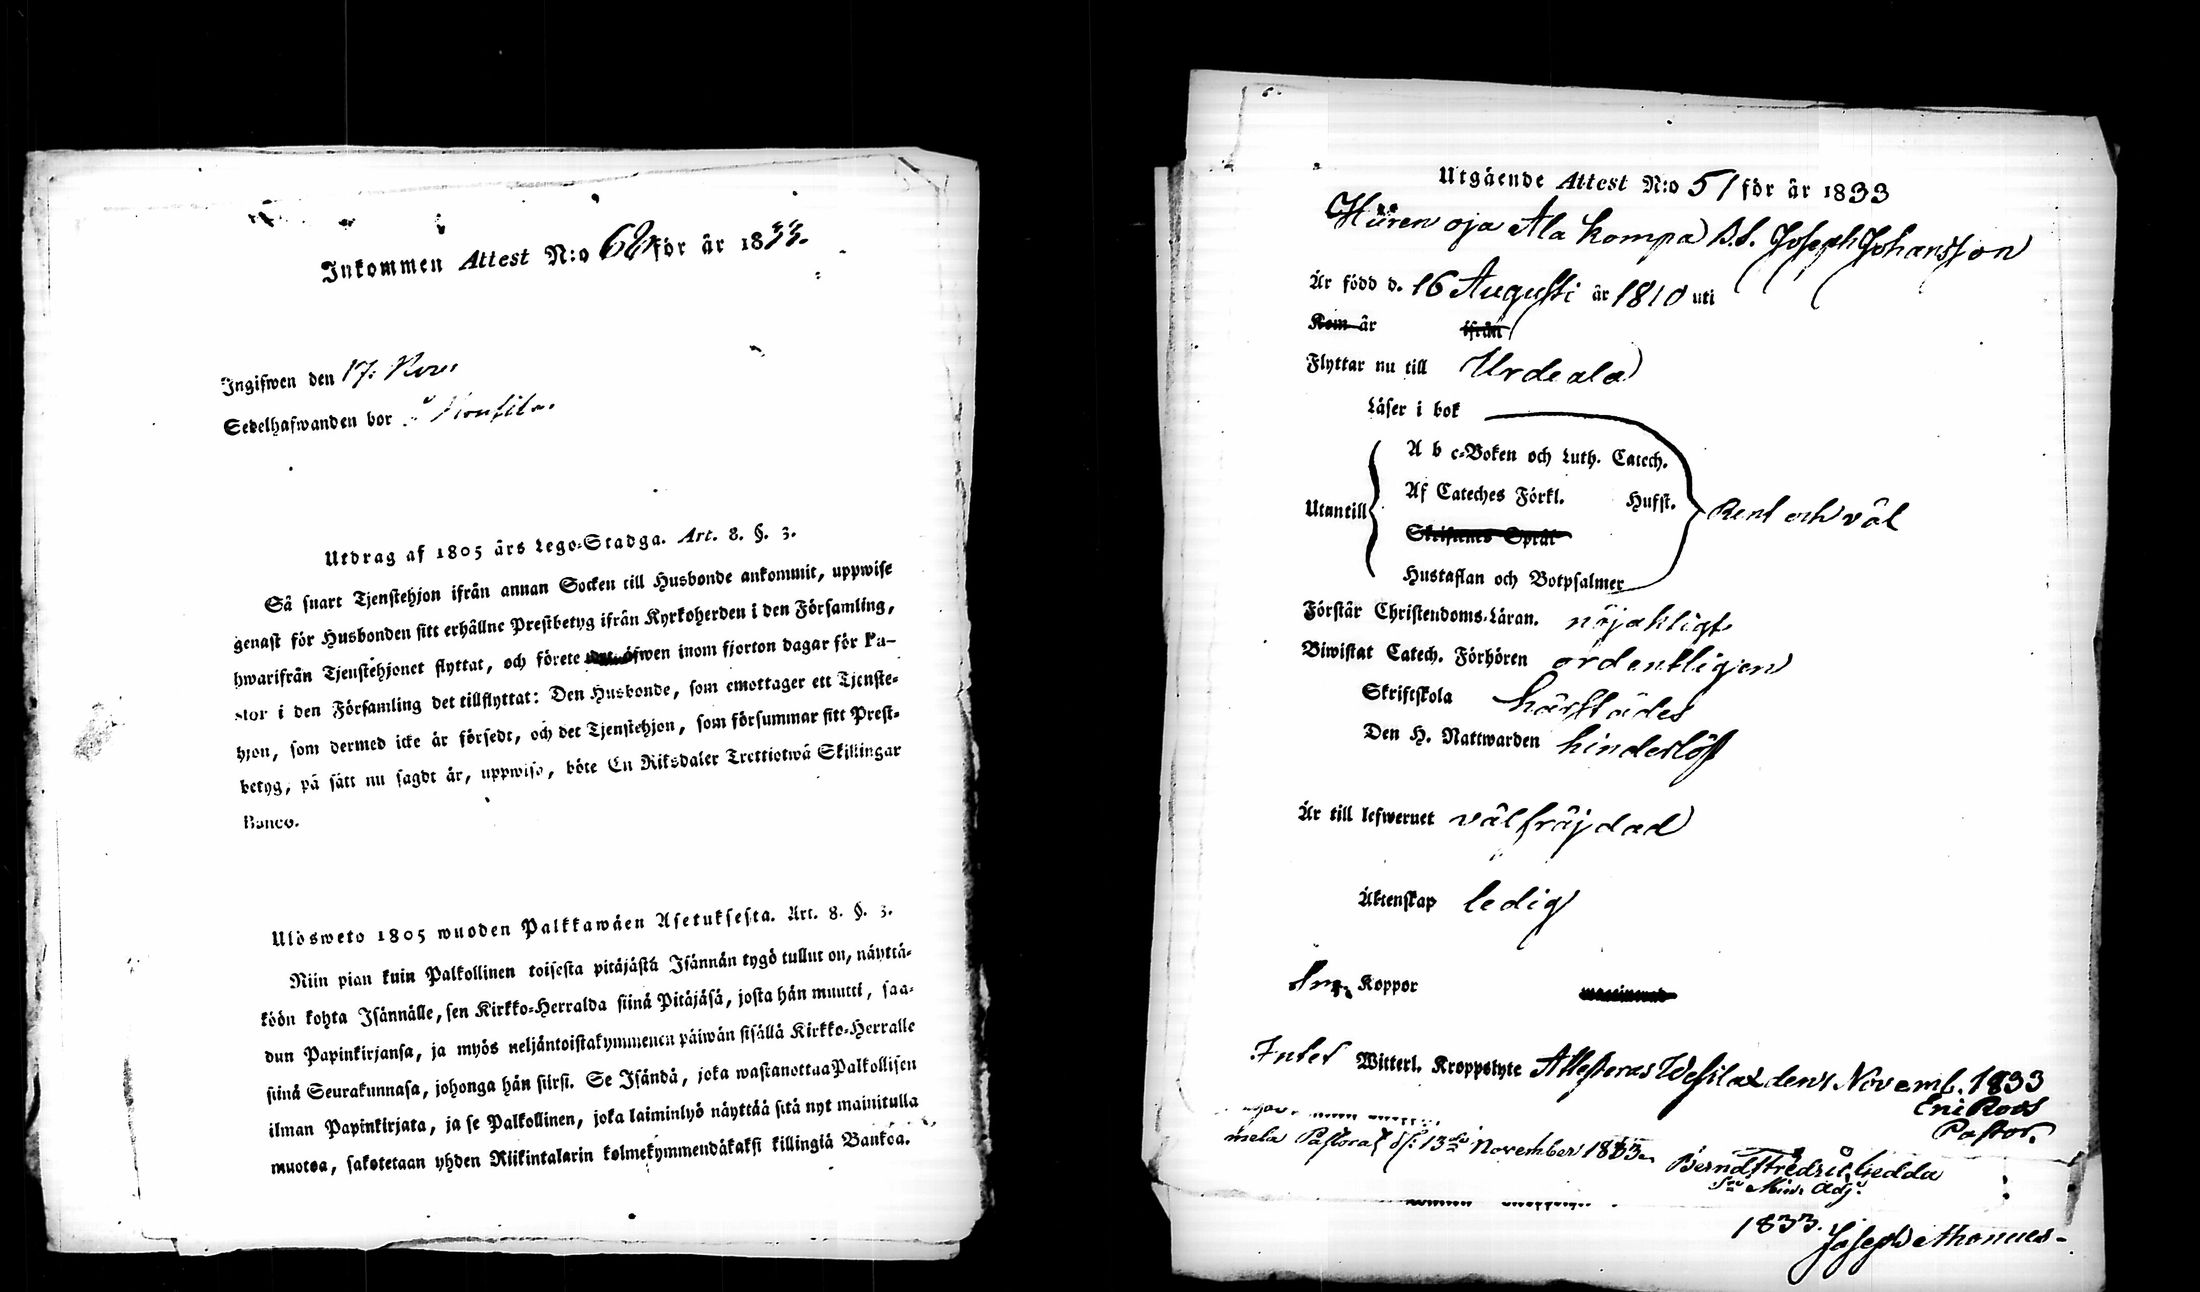 Inkommen Attest N:o 68 för år 1833.
Ingifwen den 17. Nov.
Sedelhafwanden bor i
Utdrag af 1805 års Lego-Stadga. Art. 8. §. 3.
Så snart Tjenstehjon ifrån annan Socken till Husbonde ankommit, uppwise
genast för Husbonden sitt erhållne Prestbetyg ifrån Kyrkoherden i den Församling,
hwarifrån Tjenstehjonet flyttat, och förete äfwen inom fjorton dagar för Pa-
stor i den Församling det tillflyttat: Den Husbonde, som emottager ett Tjenste-
hjon, som dermed icke är försedt, och det Tjenstehjon, som försummar sitt Prest-
betyg, på sätt nu sagdt är, uppwisa, böte En Riksdaler Trettiotwå Skillingar
Banco.
Ulosweto 1805 wuoden Palkkawäen Asetuksesta. Art. 8. §. 3.
Niin pian kuin Palkollinen toisesta pitäjästä Isännän tygö tullut on, näyttä-
köön kohta Isännälle, sen Kirkko-Herralda siinä Pitäjäsä, josta hän muutti, saa-
dun Papinkirjansa, ja myös neljäntoistakymmenen päiwän sisällä Kirkko-Herralle
siinä Seurakunnasa, johonga hän siirsi. Se Isändä, joka wastanottaa Palkollisen
ilman Papinkirjata, ja se Palkollinen, joka laiminlyö näyttää sitä nyt mainitulla
muotoa, sakotetaan yhden Riikintalarin kolmekymmendäkaksi killingiä Bankoa.
Utgående Attest N:o 51 för år 1833
oja Ala kompa D.S. Joseph Johansson
Är född d. 16 Augusti år 1810 uti
Kom år ifrån
Flyttar nu till Urdeala
Läser i bok
A b c-Boken och Luth. Catech.
Af Cateches Förkl. Hufst.
Utantill Rent och väl
Skriftenes Språk
Hustaflan och Botpsalmer
Förstår Christendoms-Läran. nöjaktligt
Biwistat Catech. Förhören ordentligen
Skriftskola härstädes
Den H. Nattwarden hinderlöst
Är till lefwernet välfräjdad
Äktenskap ledig
Koppor
Intet Witterl. Kroppslyte Attesteras Wesilax den 1 Novemb. 1833
Eric Roos
Pastor.
Pastorat d. 13de November 1833.
Berndt Fredric Gedda
Min. Adj.
1833. Joseph